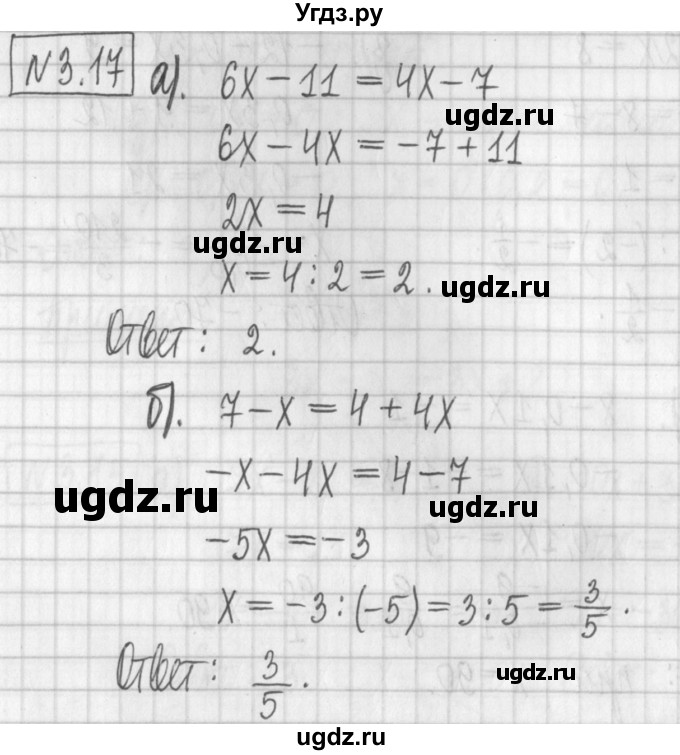 Угдз.ру
№3.17 а). 6x − 11 = 4x − 7
ugdz.ru
6x − 4x = −7 + 11
2x = 4
ugdz.ru
x = 4 : 2 = 2.
ugdz.ru
Ответ: 2.
б). 7 − x = 4 + 4x
−x − 4x = 4 − 7
ugdz.ru
ugdz.ru
−5x = −3
x = −3 : (−5) = 3 : 5 = 3/5.
Ответ: 3/5.
ugdz.ru
ugdz.ru
ugdz.ru